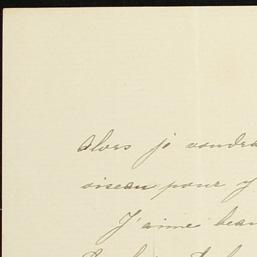 Alors je voudra
oiseau pour y
J'aime beau